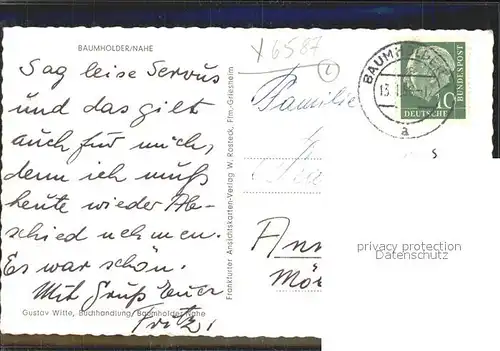 BAUMHOLDER/NAHE
Sag leise Servus
und das gilt
auch für mich,
denn ich muß
heute wieder Ab-
schied nehmen.
Es war schön.
Mit Gruß Euer
Fritz,
Gustav Witte, Buchhandlung, Baumholder/Nahe
Frankfurter Ansichtskarten-Verlag W. Rosteck, Ffm.-Griesheim
X 6587
L
Familie
BAUMHOLDER
13
a
10
DEUTSCHE
BUNDESPOST
s
Ann
Mör
privacy protection
Datenschutz